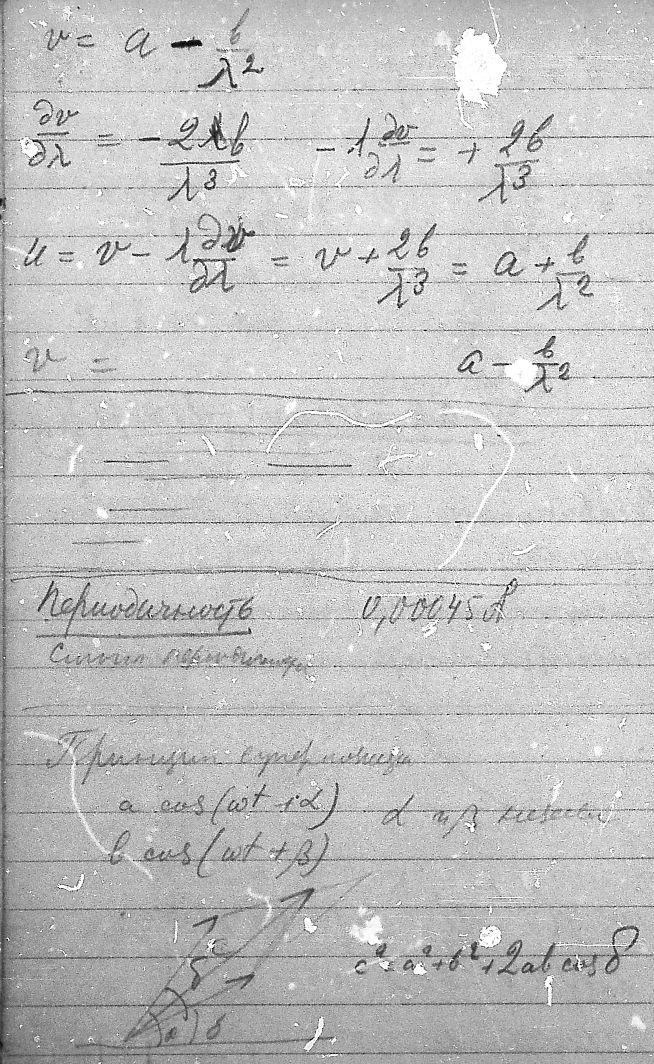 v = a - b/λ²
∂v/∂λ = - 2λb/λ³   - λ ∂v/∂λ = + 2b/λ³
u = v - λ ∂v/∂λ = v + 2b/λ³ = a + b/λ²
v =   a - b/λ²
Периодичность   0,00045 Å
Принцип суперпозиции
a cos(ωt + α)   α и β
b cos(ωt + β)
c
δ
c² = a² + b² + 2ab cos δ